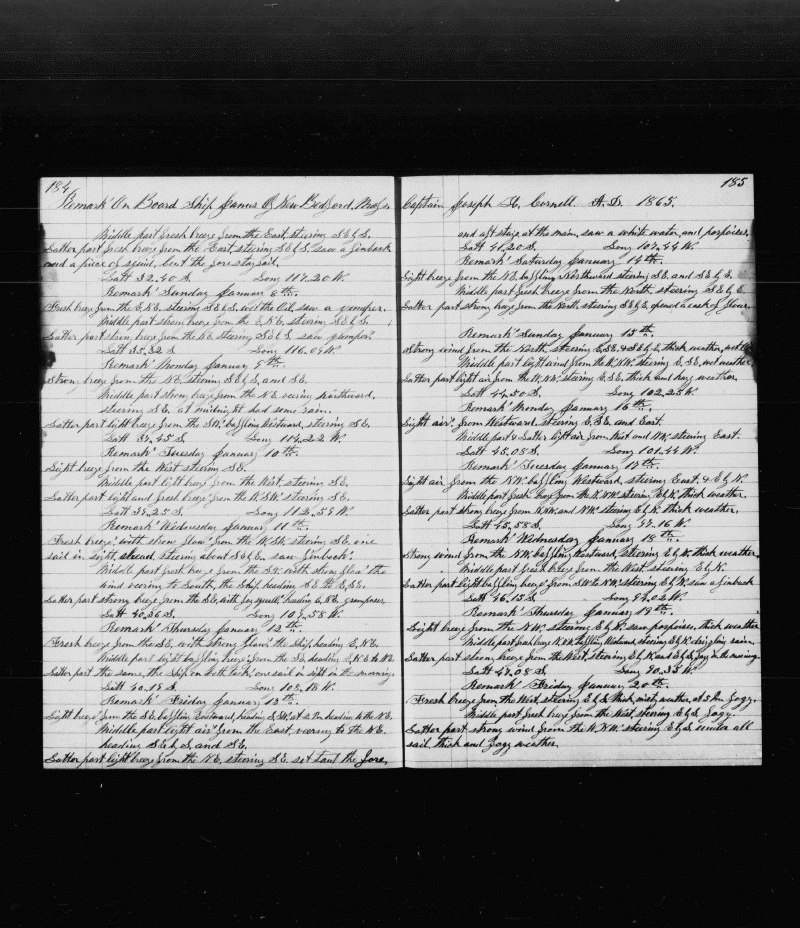 184
Remark' On Board Ship James Of New Bedford, Mass.
Middle part fresh breeze from the East, steering S.E by S.
Latter part fresh breeze from the East, steering S.E by S. saw a finback
and a piece of squid, bent the fore staysail.
Latt 32.40 S. Long 117.20 W.
Remark' Sunday January 8th.
Fresh breeze from the E.N.E. steering S.E by S. wet the Oil, saw a
Middle part strong breeze from the E.N.E. steering S.E by S.
Latter part strong breeze from the N.E. steering S.E by S. saw
Latt 35.32 S Long 116.09 W.
Remark' Monday January 9th.
Strong breeze from the N.E. steering S.E by S, and S.E.
Middle part strong breeze from the N.E. veering Northward,
steering S.E. at midnight had some rain.
Latter part light breeze from the S.W. baffling Westward, steering S.E.
Latt 37.45 S Long 114.22 W.
Remark' Tuesday January 10th.
Light breeze from the West steering S.E.
Middle part light breeze from the West, steering S.E.
Latter part light and fresh breeze from the W.S.W. steering S.E.
Latt 39.25 S Long 112.59 W.
Remark' Wednesday January 11th.
Fresh breeze, with strong flaws from the W.S.W. steering S.E. one
sail in sight, ahead steering about S.E by E. saw finbacks.
Middle part fresh breeze from the S.W. with strong flaws the
wind veering to South, the Ship heading S.E. to E.S.E.
Latter part strong breeze from the S.E. with foggy squalls, heading E.N.E. grampuses,
Latt 40.36 S. Long 107.58 W.
Remark' Thursday January 12th.
Fresh breeze from the S.E. with strong flaws, the Ship, heading E.N.E.
Middle part light baffling breeze from the S.E. heading E.N.E to N.E.
Latter part the same, the Ship on both tack, one sail in sight in the morning.
Latt 40.19 S. Long 108.18 W.
Remark' Friday January 13th.
Light breeze from the S.E. baffling Eastward, heading S.W. at 2 Pm heading to the N.E.
Middle part light air from the East, veering to the N.E.
heading S.E by S, and S.E.
Latter part light breeze from the N.E. steering S.E. set taut the fore,
185
Captain Joseph H. Cornell. A.D. 1865.
and aft stays, at the main, saw a white water, and porpoises,
Latt 41.20 S. Long 107.44 W.
Remark' Saturday January 14th.
Light breeze from the N.E. baffling Northward steering S.E. and S.E by E.
Middle part fresh breeze from the North, steering S.E by E.
Latter part strong breeze from the North, steering S.E by E, opened a cask of flour.
Remark' Sunday January 15th.
Strong wind from the North, steering E.S.E. & S.E by E, thick weather,
Middle part light wind from the W.N.W. steering E.S.E, wet weather,
Latter part light air from the W.N.W. steering E.S.E, thick and hazy weather.
Latt 44.50 S. Long 102.25 W.
Remark' Monday January 16th.
Light air from Westward, steering E.S.E. and East.
Middle part & Latter light air from West and N.W. steering East.
Latt 45.08 S. Long 101.44 W.
Remark' Tuesday January 17th.
Light air from the N.W. baffling Westward, steering East, & E by N.
Middle part fresh breeze from the N.N.W. steering E by N. thick weather.
Latter part strong breeze from N.N.W. and N.W. steering E by N. thick weather.
Latt 45.58 S. Long 97.16 W.
Remark' Wednesday January 18th.
Strong wind from the N.W. baffling Westward, steering E by N. thick weather,
Middle part fresh breeze from the West, steering E by N.
Latter part light baffling breeze from S.W. to N.W. steering E by N. saw a finback
Latt 46.15 S Long 94.02 W.
Remark' Thursday January 19th.
Light breeze from the N.W. steering E by N. saw porpoises, thick weather
Middle part fresh breeze N.N.W. baffling Westward, steering E by N. drizzling rain.
Latter part strong breeze from the West, steering E by N. and E by S, fog in the morning.
Latt 47.08 S. Long 90.35 W.
Remark' Friday January 20th.
Fresh breeze from the West, steering E by S. thick, misty weather, at 5 Pm foggy.
Middle part fresh breeze from the West, steering E by S. foggy.
Latter part strong wind from the W.N.W. steering E by S. under all
sail, thick and foggy weather.